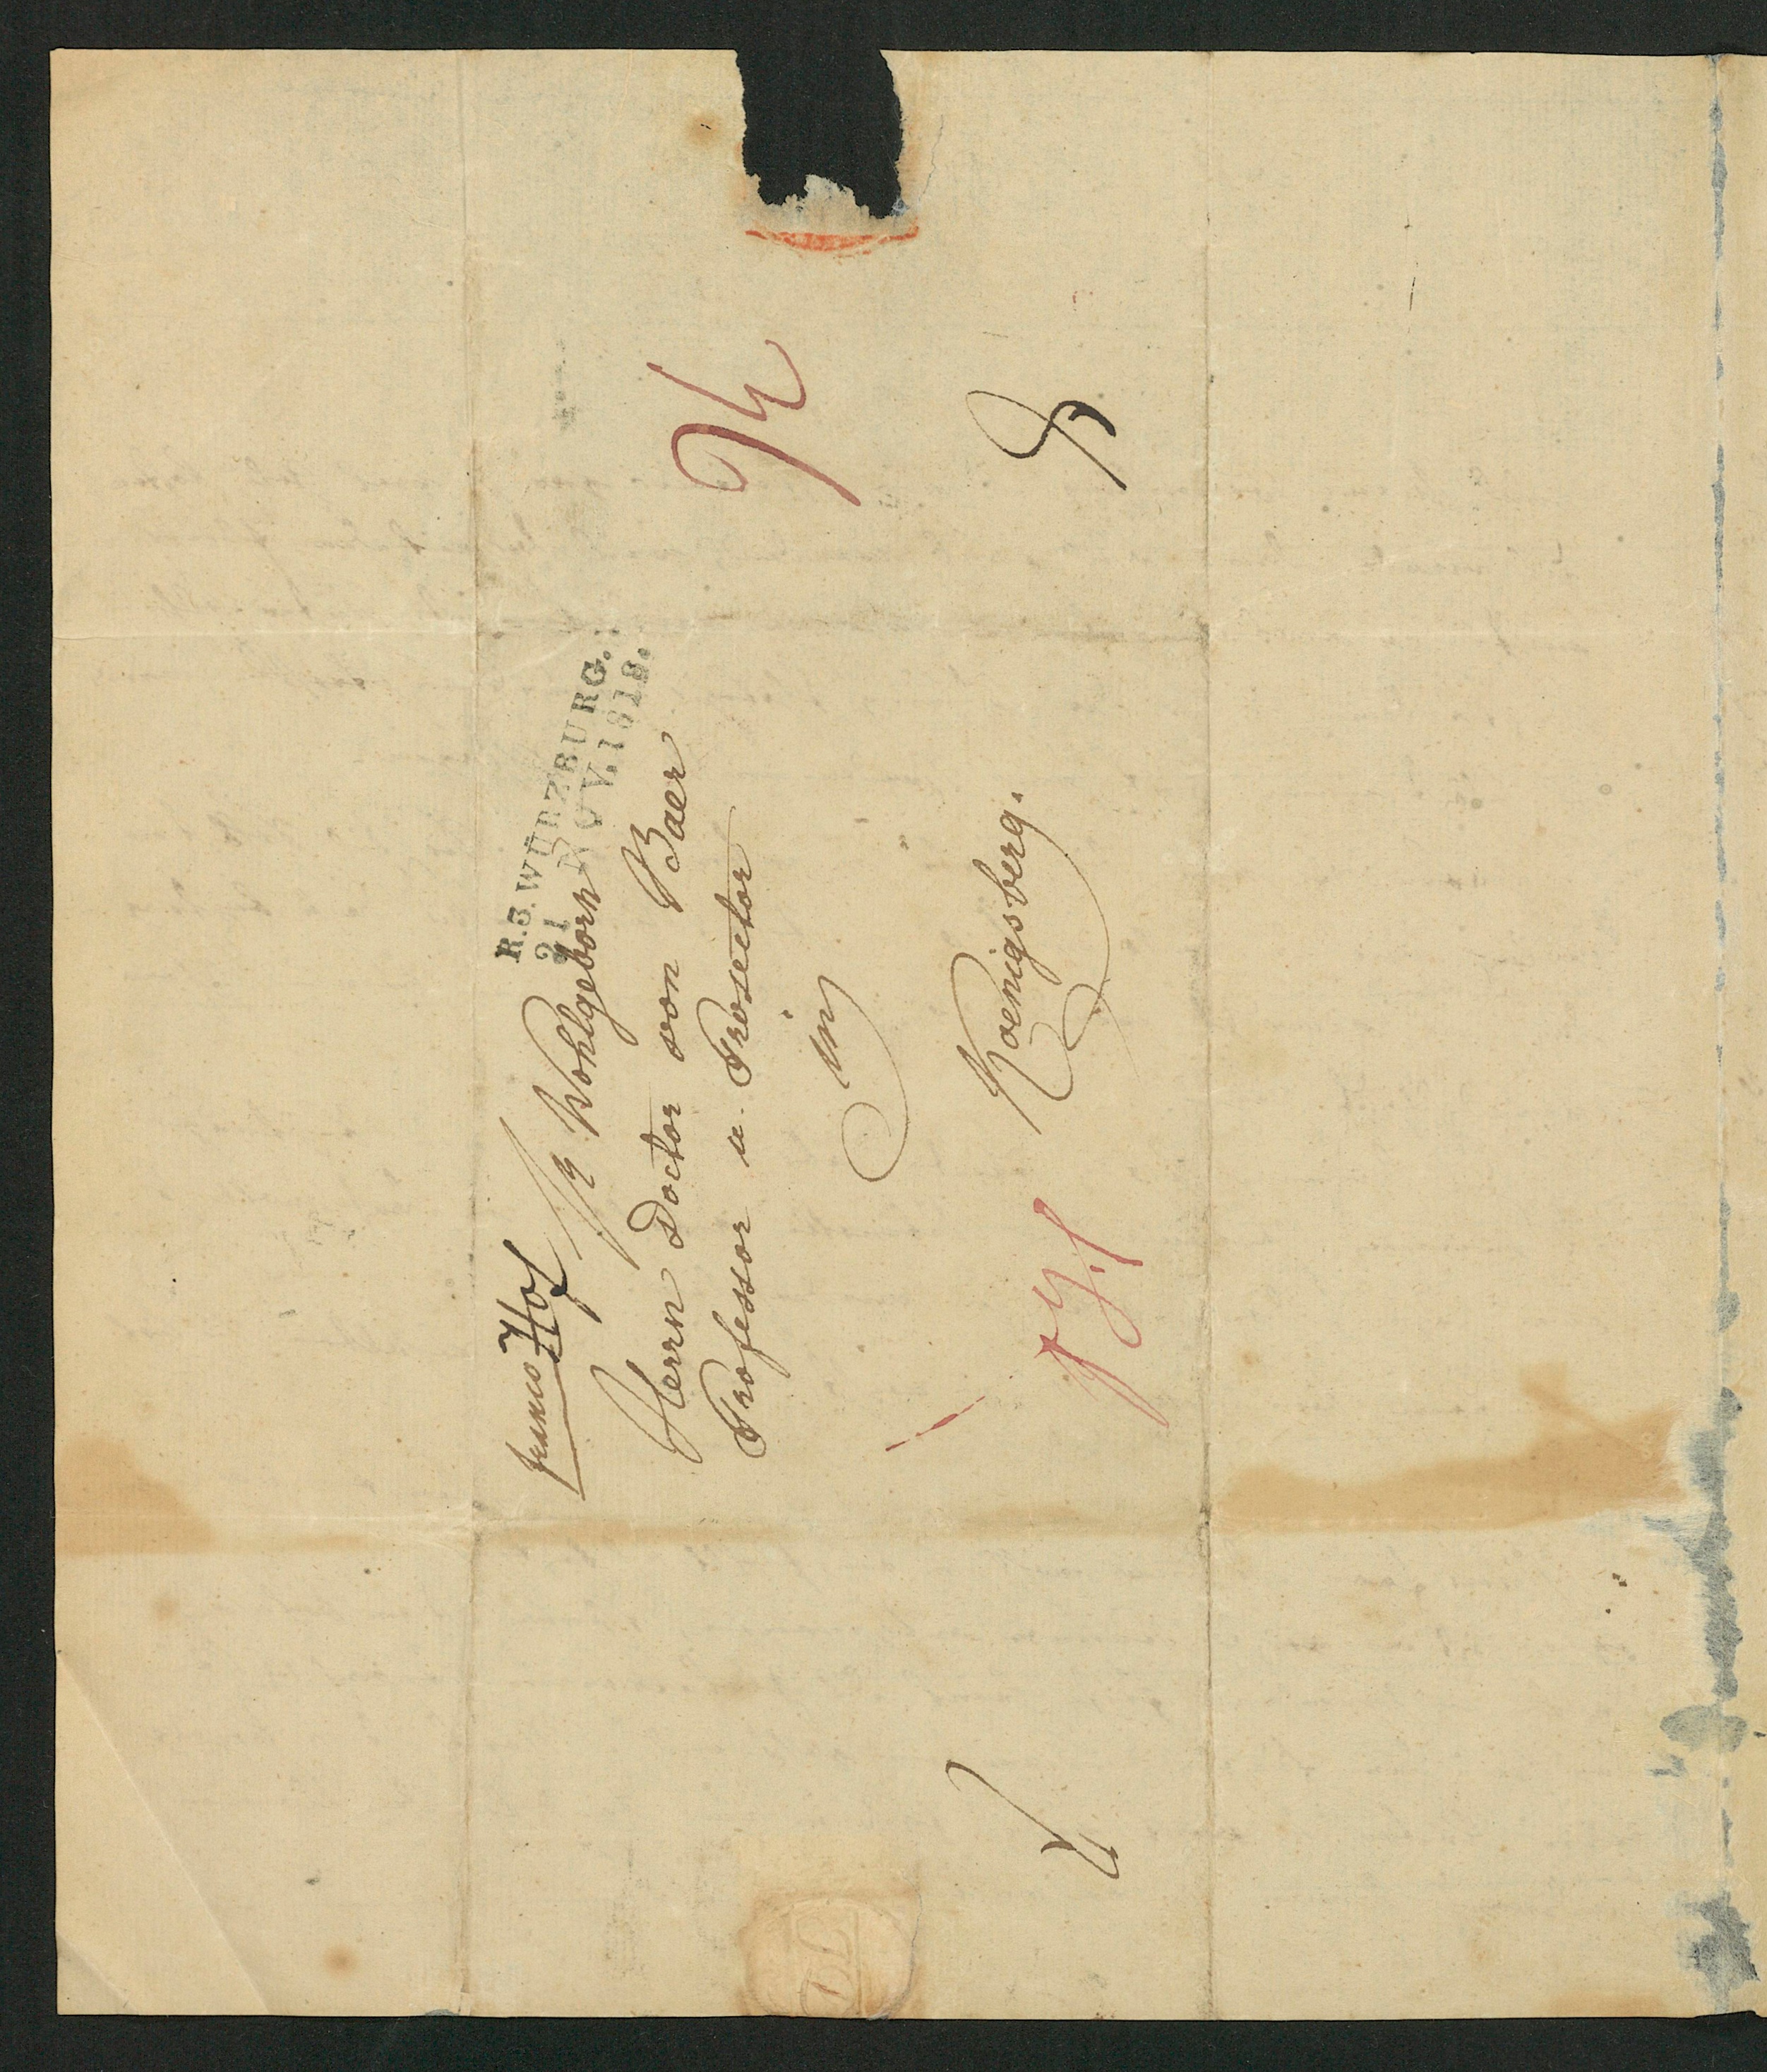 R.3. WÜRZBURG.
21 NOV. 1818.
franco Hof
Sr Wohlgeborn
Herrn Doctor von Baer
Professor u. Prosector
in
Koenigsberg.